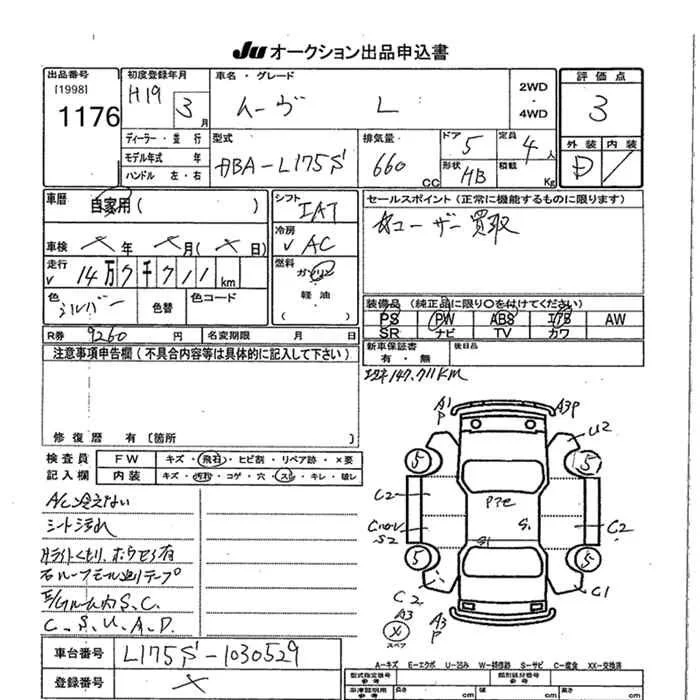 Ju オークション出品申込書
出品番号
[1998]
1176
初度登録年月
H19 3 月
車名・グレード
ムーヴ L
2WD
・
4WD
評価点
3
外装 内装
D /
ディーラー・並行
モデル年式 年
ハンドル 左・右
型式
ABA-L175S
排気量
660 CC
ドア 5
定員 4人
形状 HB
積載 Kg
車歴 自家用 ( )
車検 × 年 ×月(×日)
走行 √ 14万7千711km
色 シルバー
色替
色コード
シフト IAT
冷房 √ AC
燃料 ガソリン
軽油
( )
セールスポイント(正常に機能するものに限ります)
☆ユーザー買取
装備品(純正品に限り○を付けてください)
PS PW ABS エアB AW
SR ナビ TV カワ
新車保証書 後日品
有・無
R券 9260 円 名変期限 月 日
147,711KM
注意事項申告欄(不具合内容等は具体的に記入して下さい)
修復歴 有 〔箇所 〕
検査員 FW キズ・飛石・ヒビ割・リペア跡・×要
記入欄 内装 キズ・汚れ・コゲ・穴・スレ・キレ・破レ
A/C冷えない
シート汚れ
右ルーフモール テープ
E/Gルーム内S.C.
C.S.U.A.P.
A1
P
A3P
U2
5
5
C2
C2
S2
5
5
C2
C1
A3
スペア
A3
P
車台番号 L175S-1030529
登録番号 ×
A-キズ E-エクボ U-凹み W-補修跡 S-サビ C-腐食 XX-交換済
型式指定番号
参考
類別区分番号
参考
長さ cm 幅 cm 高さ cm